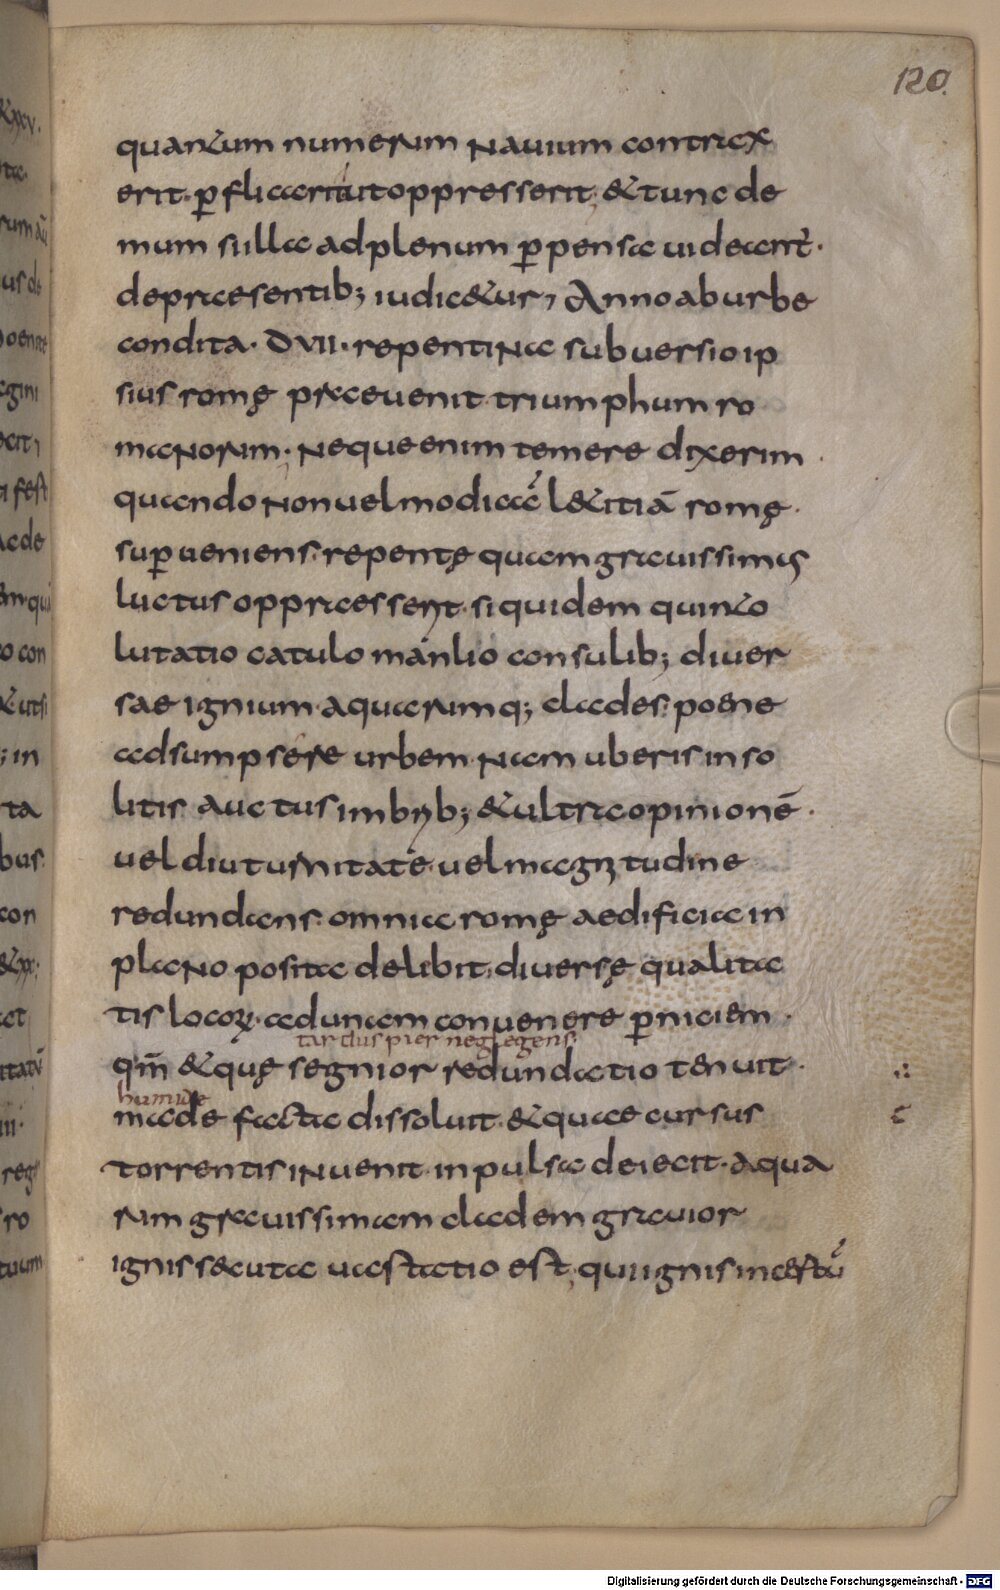 120.
quantum numerum nauium contrax
erit. ꝑ fliccaritutoppresserit; & tunc de
mum sulla ad plenum ꝑpensa uideant.
depraesentib; iudic&ur, Anno ab urbe
condita. DVII. repentina subuersio ip
sius romę praeuenit triumphum ro
manorum. Neque enim temere dixerim
quando non uel modicā l&itiā romę.
suꝑueniens. repentę quam grauissimis
luctus oppraessent. siquidem quinto
lutatio catulo manlio consulib; diuer
sae ignium. aquarumq; clades. poene
adsumpsere urbem. Nam uberis inso
litis. auctus imbrib; & ultra opinionē.
uel diuturnitate. uel magnitudine
redundans. omnia romę aedificia in
plano posita delibit. diuersę qualita
tis locoꝝ. ad unam conuenere ꝑniciem.
tardus pier neglegens.
qm̄ & quę segnior redundatio tenuit.
humide
made facta dissoluit. & quae cursus
torrentis inuenit. inpulsa deiecit. aqua
rum grauissimam cladem grauior
ignis secuta uastatio est. qui ignis incertū
Digitalisierung gefördert durch die Deutsche Forschungsgemeinschaft - DFG